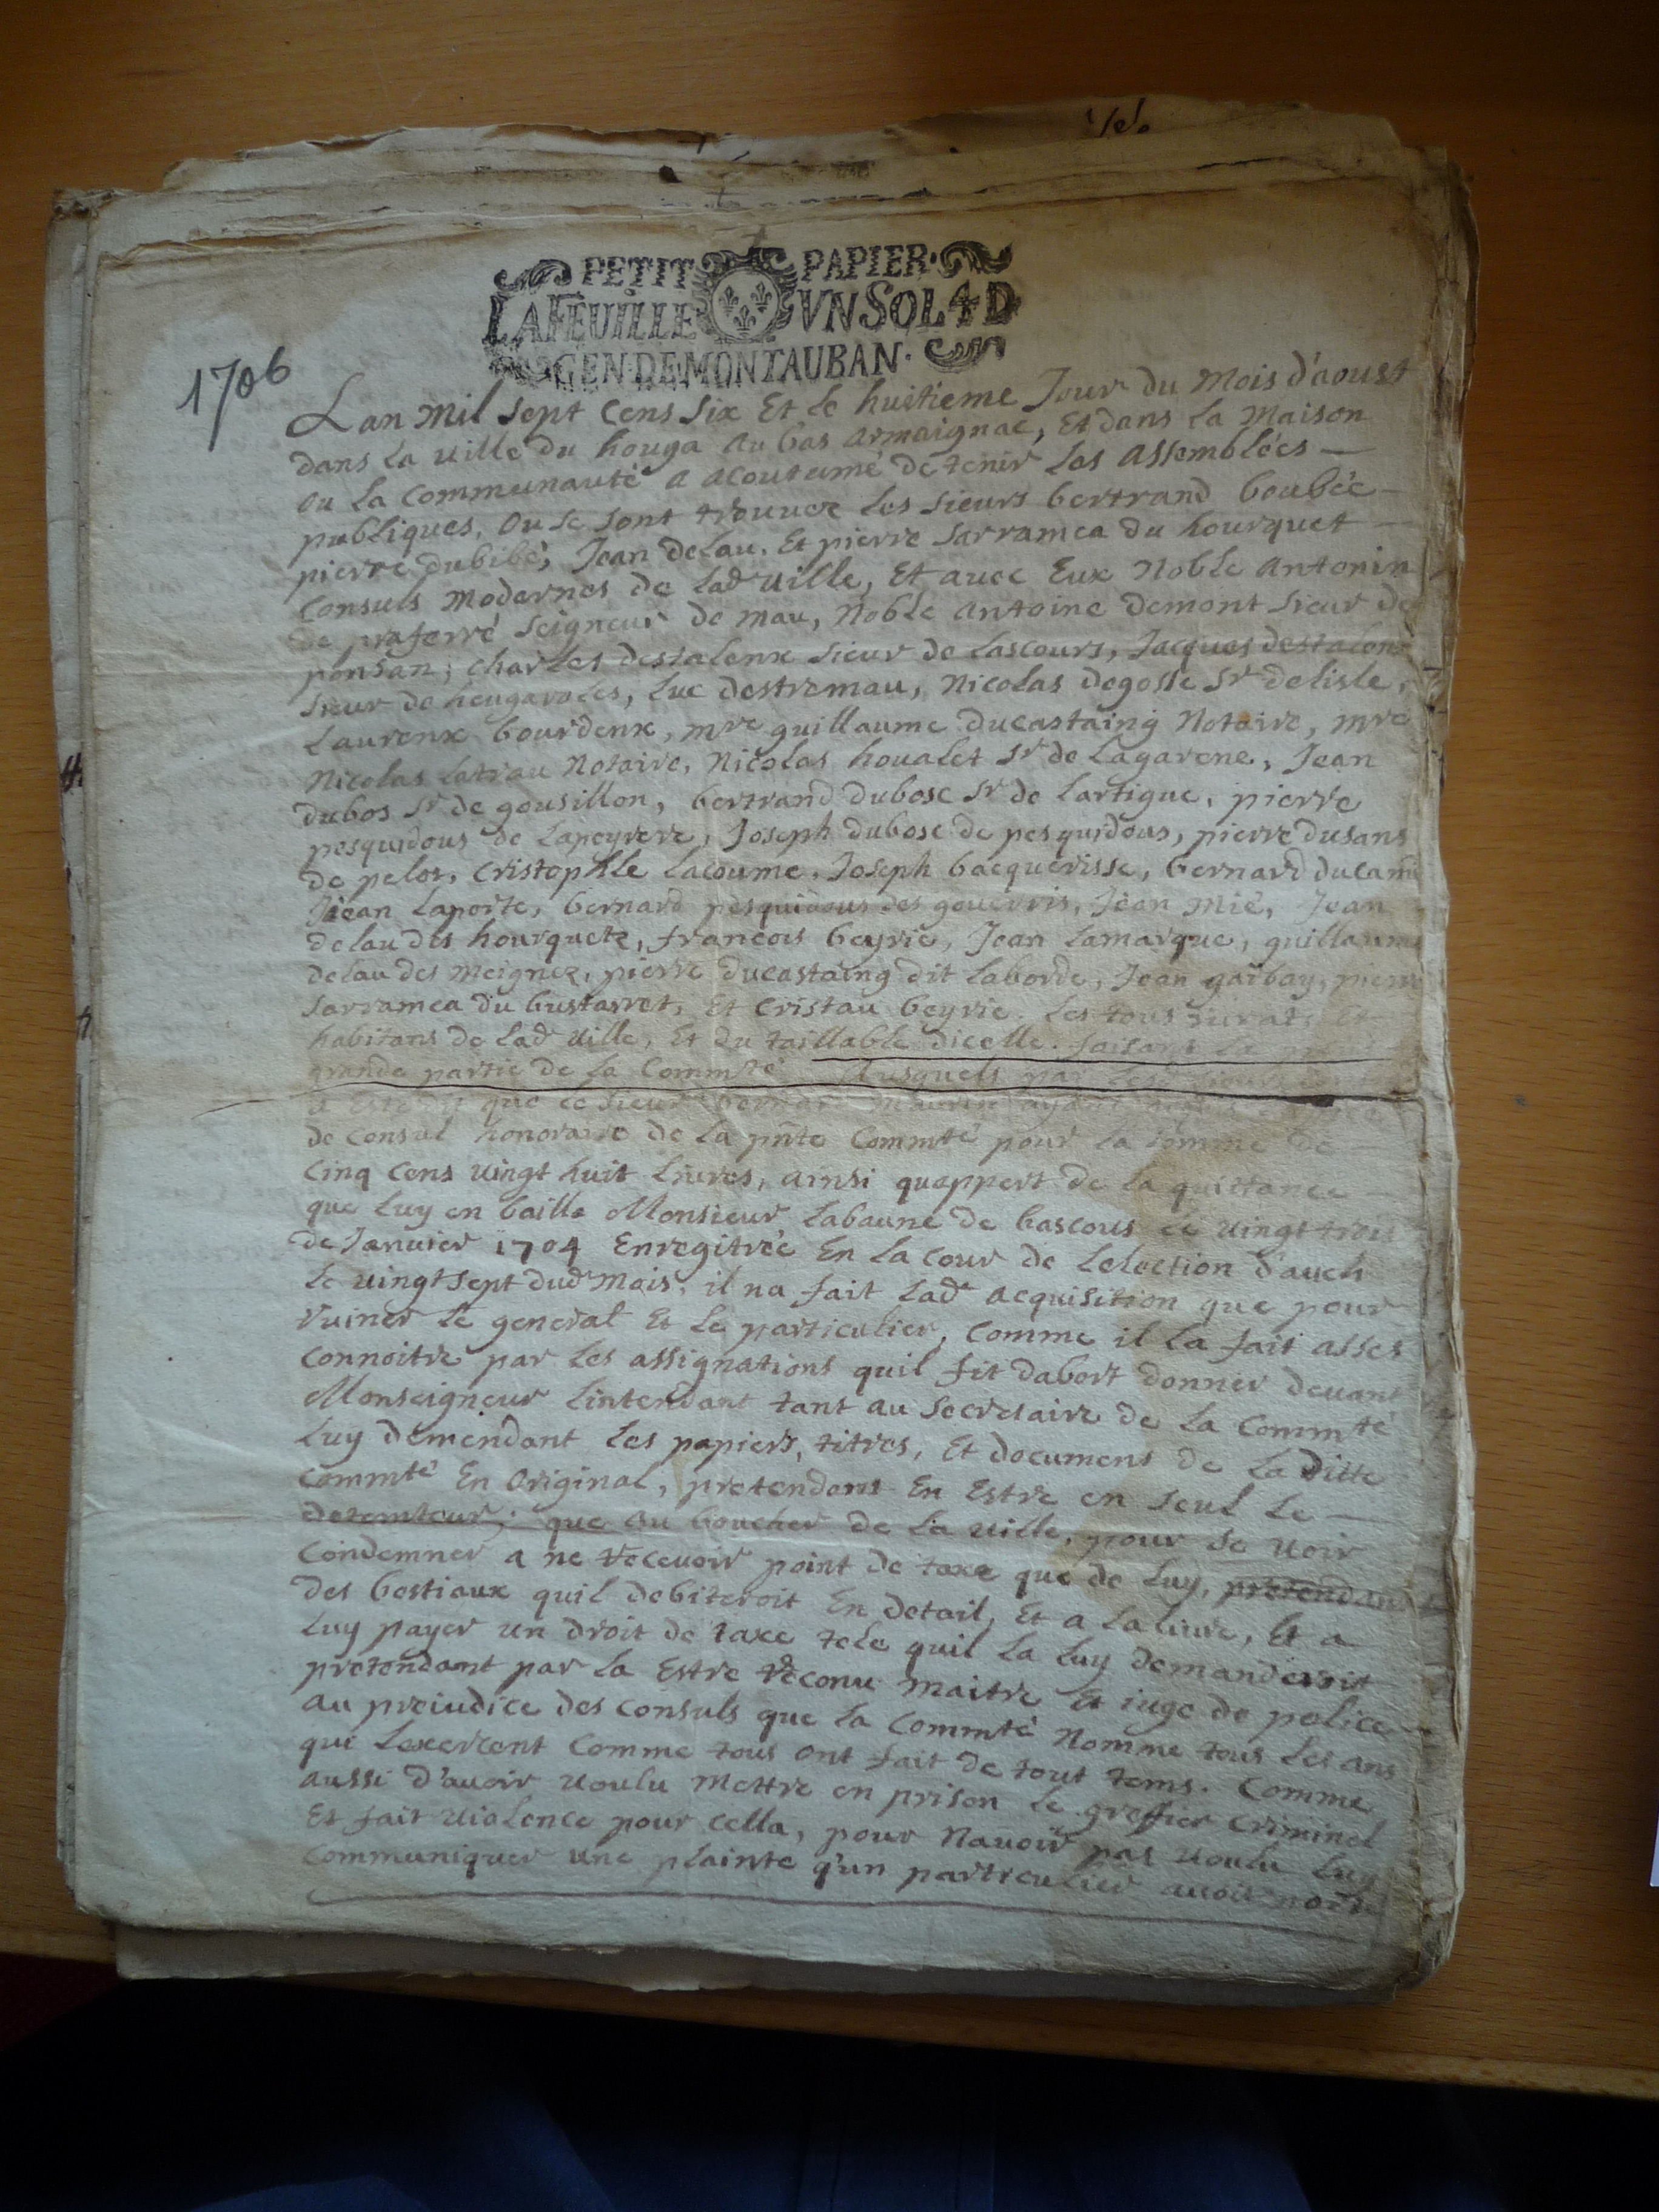 PETIT PAPIER.
LA FEUILLE VN SOL 4 D
GEN. DE MONTAUBAN.
1706
Lan Mil sept Cens six Et le huitieme Jour du Mois d'aoust
dans la ville du houga au bas armaignac, Et dans la Maison
ou la Communauté a acoutumé de tenir les assemblées —
publiques, ou se sont trouvez les sieurs bertrand boubée —
pierre dubibé, Jean delau, Et pierre sarramea du hourquet —
Consuls Modernes de lad ville, Et avec Eux Noble antonin
de praferré seigneur de mau, Noble antoine demont sieur de
ponsan, charles destalenx sieur de lascours, Jacques destalenx
sieur de heugaroles, luc destremau, Nicolas degosse Sr delisle,
laurenx bourdenx, mre guillaume ducastaing Notaire, mre
Nicolas latrau Notaire, Nicolas houalet Sr de lagarene, Jean
dubos Sr de gousillon, bertrand dubosc Sr de lartigue, pierre
pesquidous de lapeyrere, Joseph dubosc de pesquidous, pierre dusans
de pelos, Cristophle lacoume, Joseph bacquerisse, bernard
Jean laporte, bernard pesquidous des gouerris, Jean Mie, Jean
delau des hourquetz, francois beyrie, Jean lamarque, guillaume
delau des meignez, pierre ducastaing dit laborde, Jean garbay, pierre
sarramea du bustarret, Et Cristau beyrie. les tous jurats Et
habitans de lad ville, Et du taillable dicelle. faisans la
grande partie de la Commté Ausquels par
a esté dit que le sieur
de Consul honoraire de la pnte Commté pour la somme de —
Cinq Cens vingt huit livres, ainsi quappert de la quittance —
que luy en baille Monsieur labaune de bascous le vingt trois
de Janvier 1704 Enregitrée En la cour de lelection d'auch
le vingt sept dud mois, il na fait lad acquisition que pour
ruiner le general Et le particulier, Comme il la fait asses
connoitre par les assignations quil fit dabort donner devant
Monseigneur lintendant tant au secretaire de la Commté
luy demendant les papiers, titres, Et documens de la ditte
Commté En Original, pretendant En Estre en seul le —
detemteur; que au boucher de la ville, pour se voir
Condemner a ne recevoir point de taxe que de luy, pretendant
des bestiaux quil debiteroit En detail, Et a la livre, Et a
luy payer un droit de taxe tele quil la luy demanderoit
pretendant par la Estre reconu maitre Et iuge de police —
au preiudice des consuls que la Commté Nomme tous les ans
qui lexercent Comme tous ont fait de tout tems. Comme
aussi d'avoir voulu Mettre en prison le greffier Criminel
Et fait violence pour cella, pour Navoir pas voulu luy
Communiquer une plainte q'un particulier avoit